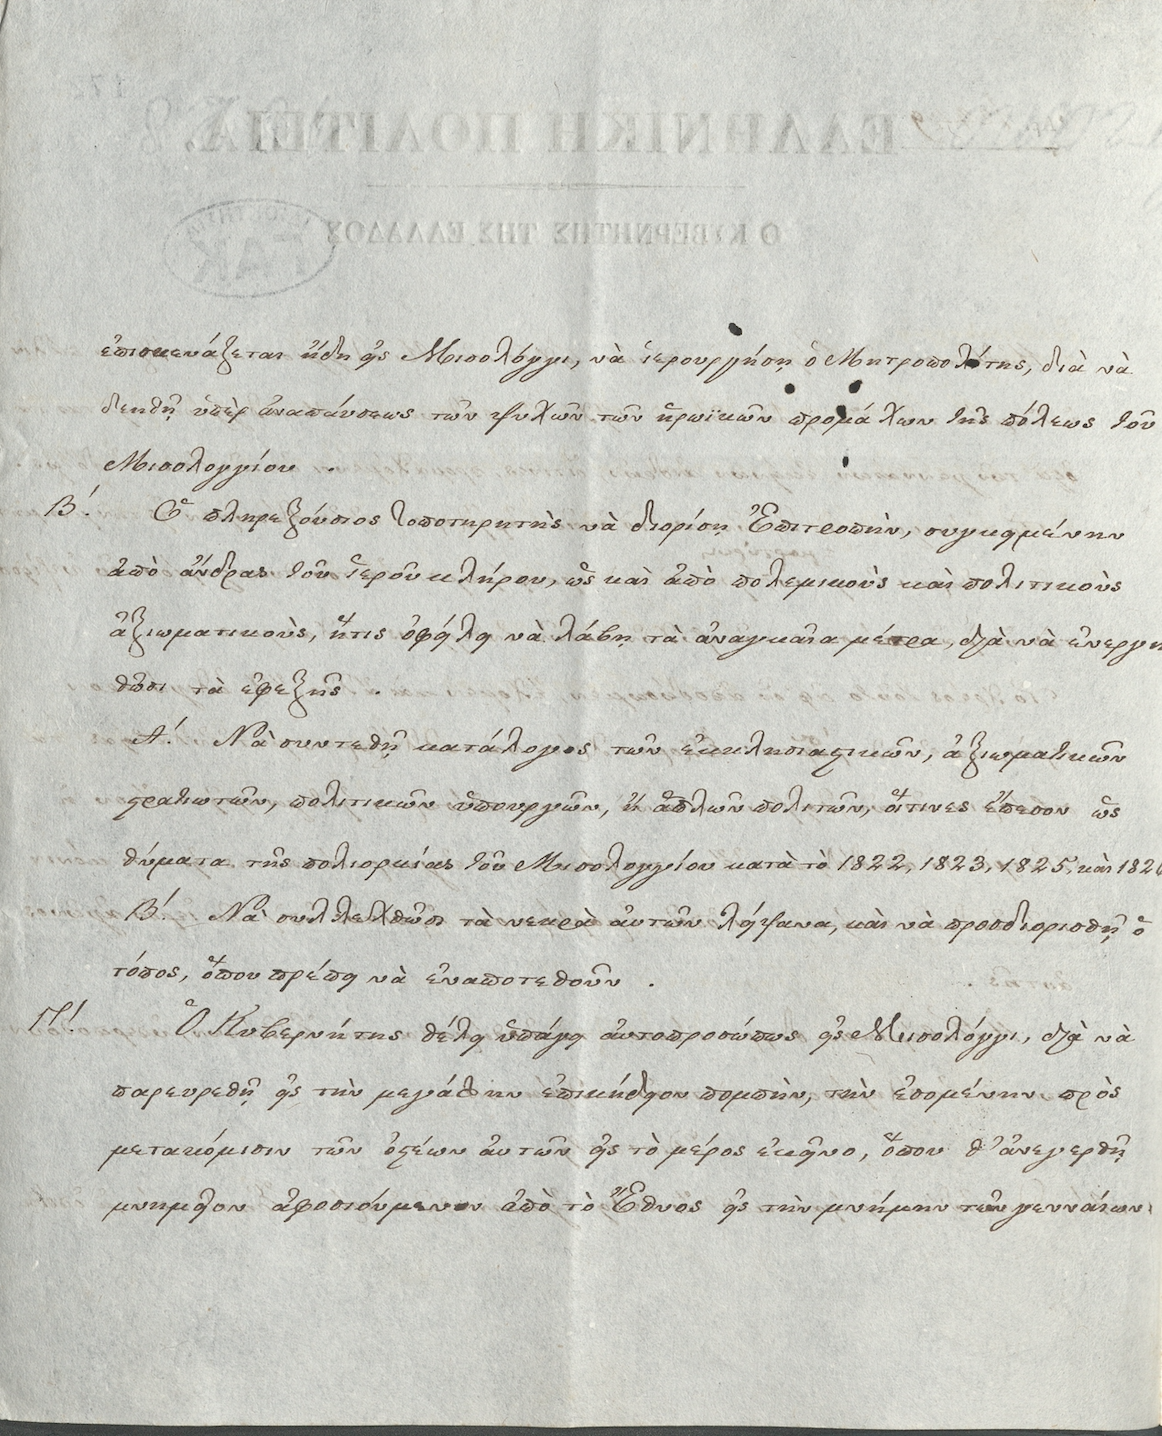 ἐπισκευάζεται ἤδη εἰς Μισολόγγι, νὰ ἱερουργήσῃ ὁ Μητροπολίτης, διὰ νὰ
δεηθῇ ὑπὲρ ἀναπαύσεως τῶν ψυχῶν τῶν ἡρωϊκῶν προμάχων τῆς πόλεως τοῦ
Μισολογγίου .
Β΄. Ὁ πληρεξούσιος τοποτηρητὴς νὰ διορίσῃ Ἐπιτροπὴν, συγκειμένην
ἀπὸ ἄνδρας τοῦ ἱεροῦ κλήρου, ὡς καὶ ἀπὸ πολεμικοὺς καὶ πολιτικοὺς
ἀξιωματικοὺς, ἥτις ὀφείλει νὰ λάβῃ τὰ ἀναγκαῖα μέτρα, διὰ νὰ ἐνεργη
θῶσι τὰ ἐφεξῆς .
Α΄. Νὰ συντεθῇ κατάλογος τῶν ἐκκλησιαστικῶν, ἀξιωματικῶν
στρατιωτῶν, πολιτικῶν ὑπουργῶν, ϗ ἁπλῶν πολιτῶν, οἵτινες ἔπεσον ὡς
θύματα τῆς πολιορκίας τοῦ Μισολογγίου κατὰ τὸ 1822, 1823, 1825, καὶ 1826
Β΄. Νὰ συλλεχθῶσι τὰ νεκρὰ αὐτῶν λείψανα, καὶ νὰ προσδιορισθῇ ὁ
τόπος, ὅπου πρέπει νὰ ἐναποτεθοῦν .
Γ΄. Ὁ Κυβερνήτης θέλει ὑπάγει αὐτοπροσώπως εἰς Μισολόγγι, διὰ νὰ
παρευρεθῇ εἰς τὴν μεγάλην ἐπικήδειον πομπὴν, τὴν ἑπομένην πρὸς
μετακόμισιν τῶν ὀστέων αὐτῶν εἰς τὸ μέρος ἐκεῖνο, ὅπου θ᾽ ἀνεγερθῇ
μνημεῖον ἀφοσιούμενον ἀπὸ τὸ Ἔθνος εἰς τὴν μνήμην τῶν γενναίων